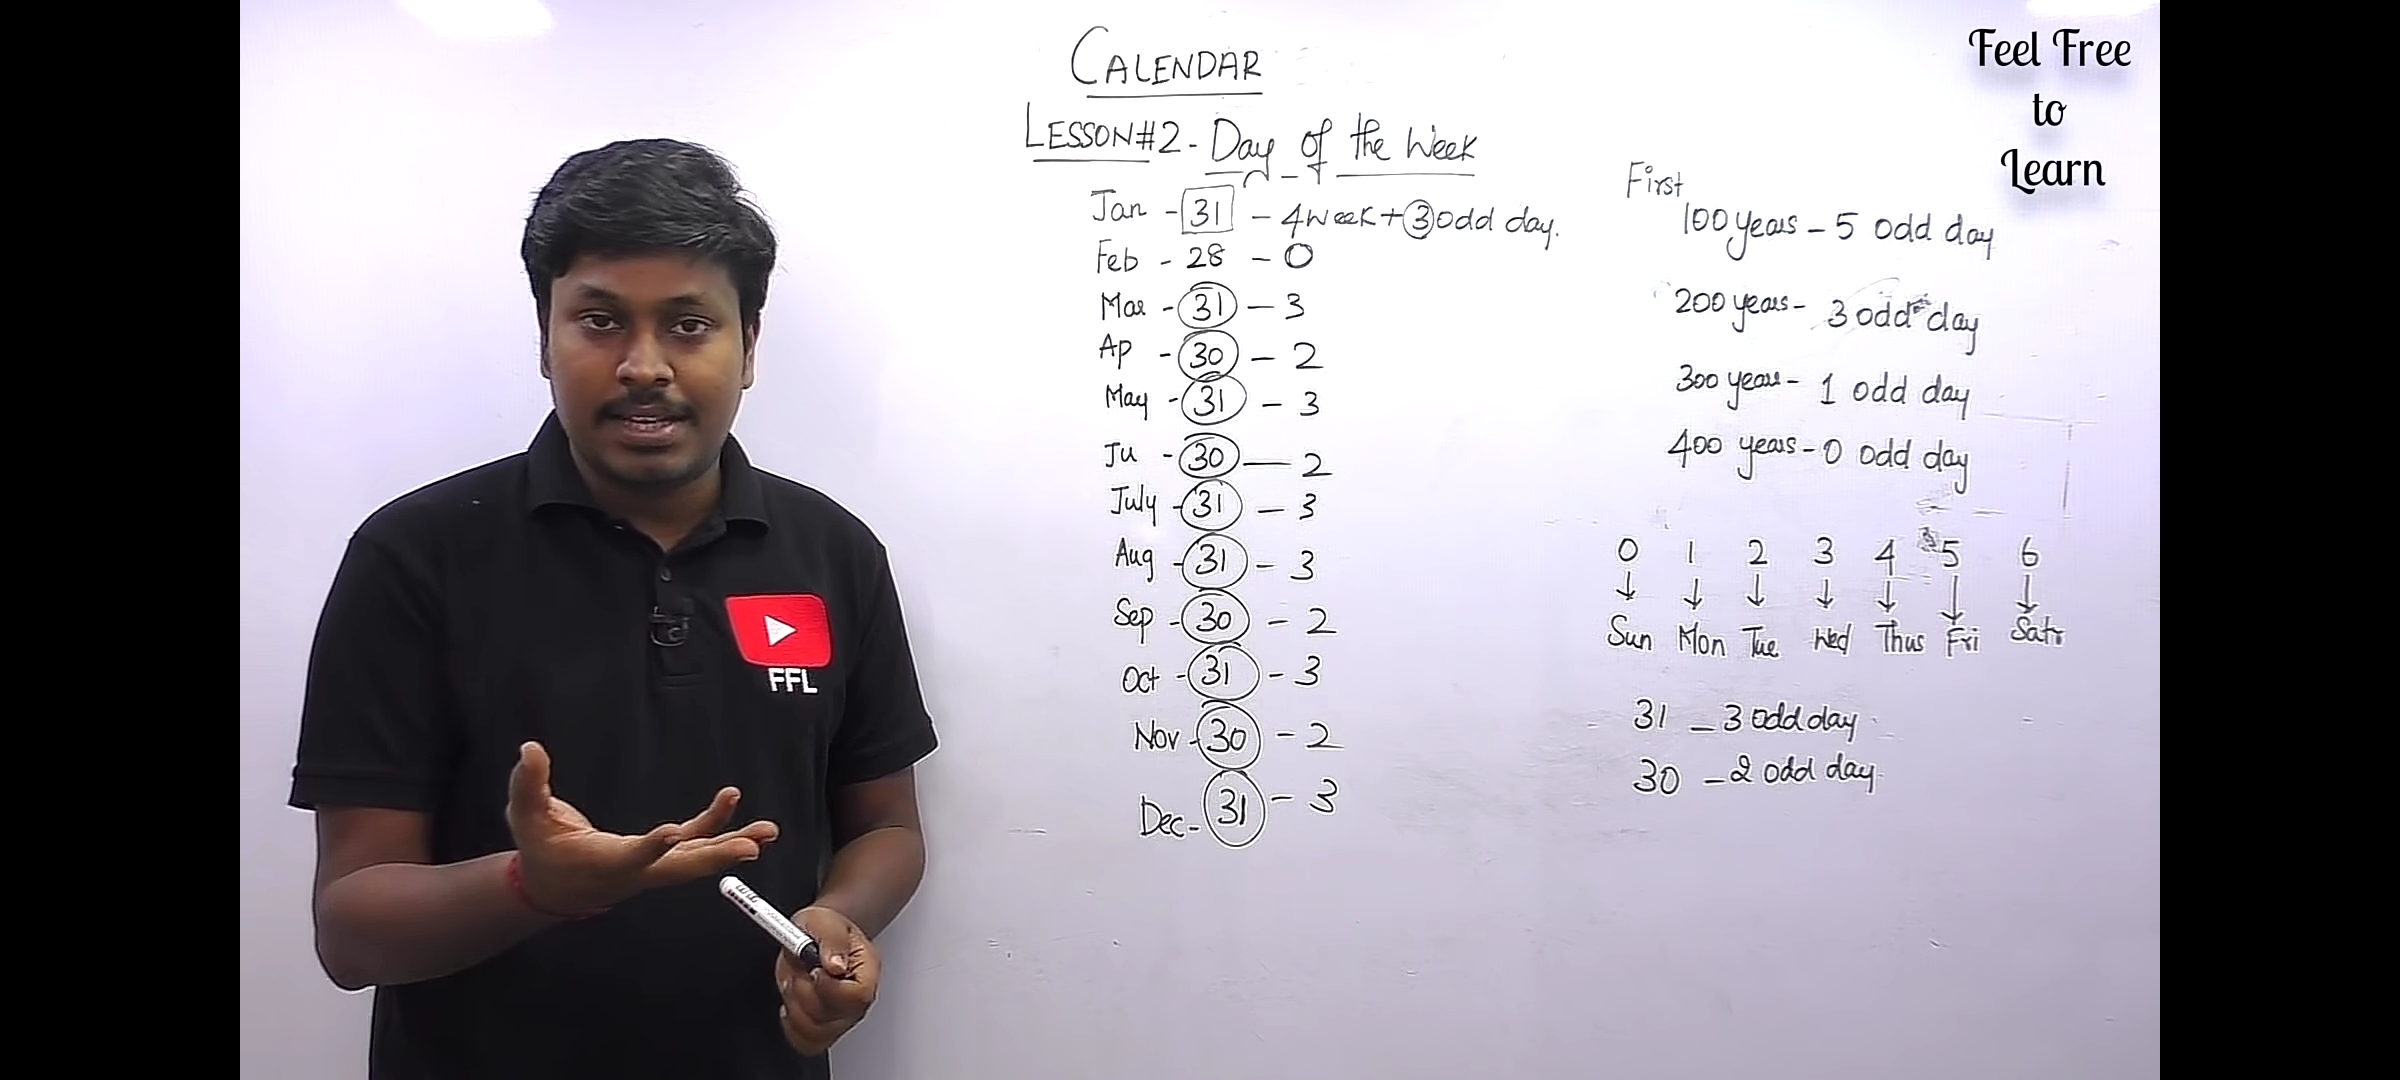 CALENDAR
LESSON#2 - Day of the Week
Jan - 31 - 4 week + 3 odd day.
Feb - 28 - 0
Mar - 31 - 3
Ap - 30 - 2
May - 31 - 3
Ju - 30 - 2
July - 31 - 3
Aug - 31 - 3
Sep - 30 - 2
Oct - 31 - 3
Nov - 30 - 2
Dec - 31 - 3
Feel Free
to
Learn
First
100 years - 5 odd day
200 years - 3 odd day
300 years - 1 odd day
400 years - 0 odd day
0 1 2 3 4 5 6
Sun Mon Tue Wed Thus Fri Satr
31 - 3 odd day
30 - 2 odd day
FFL